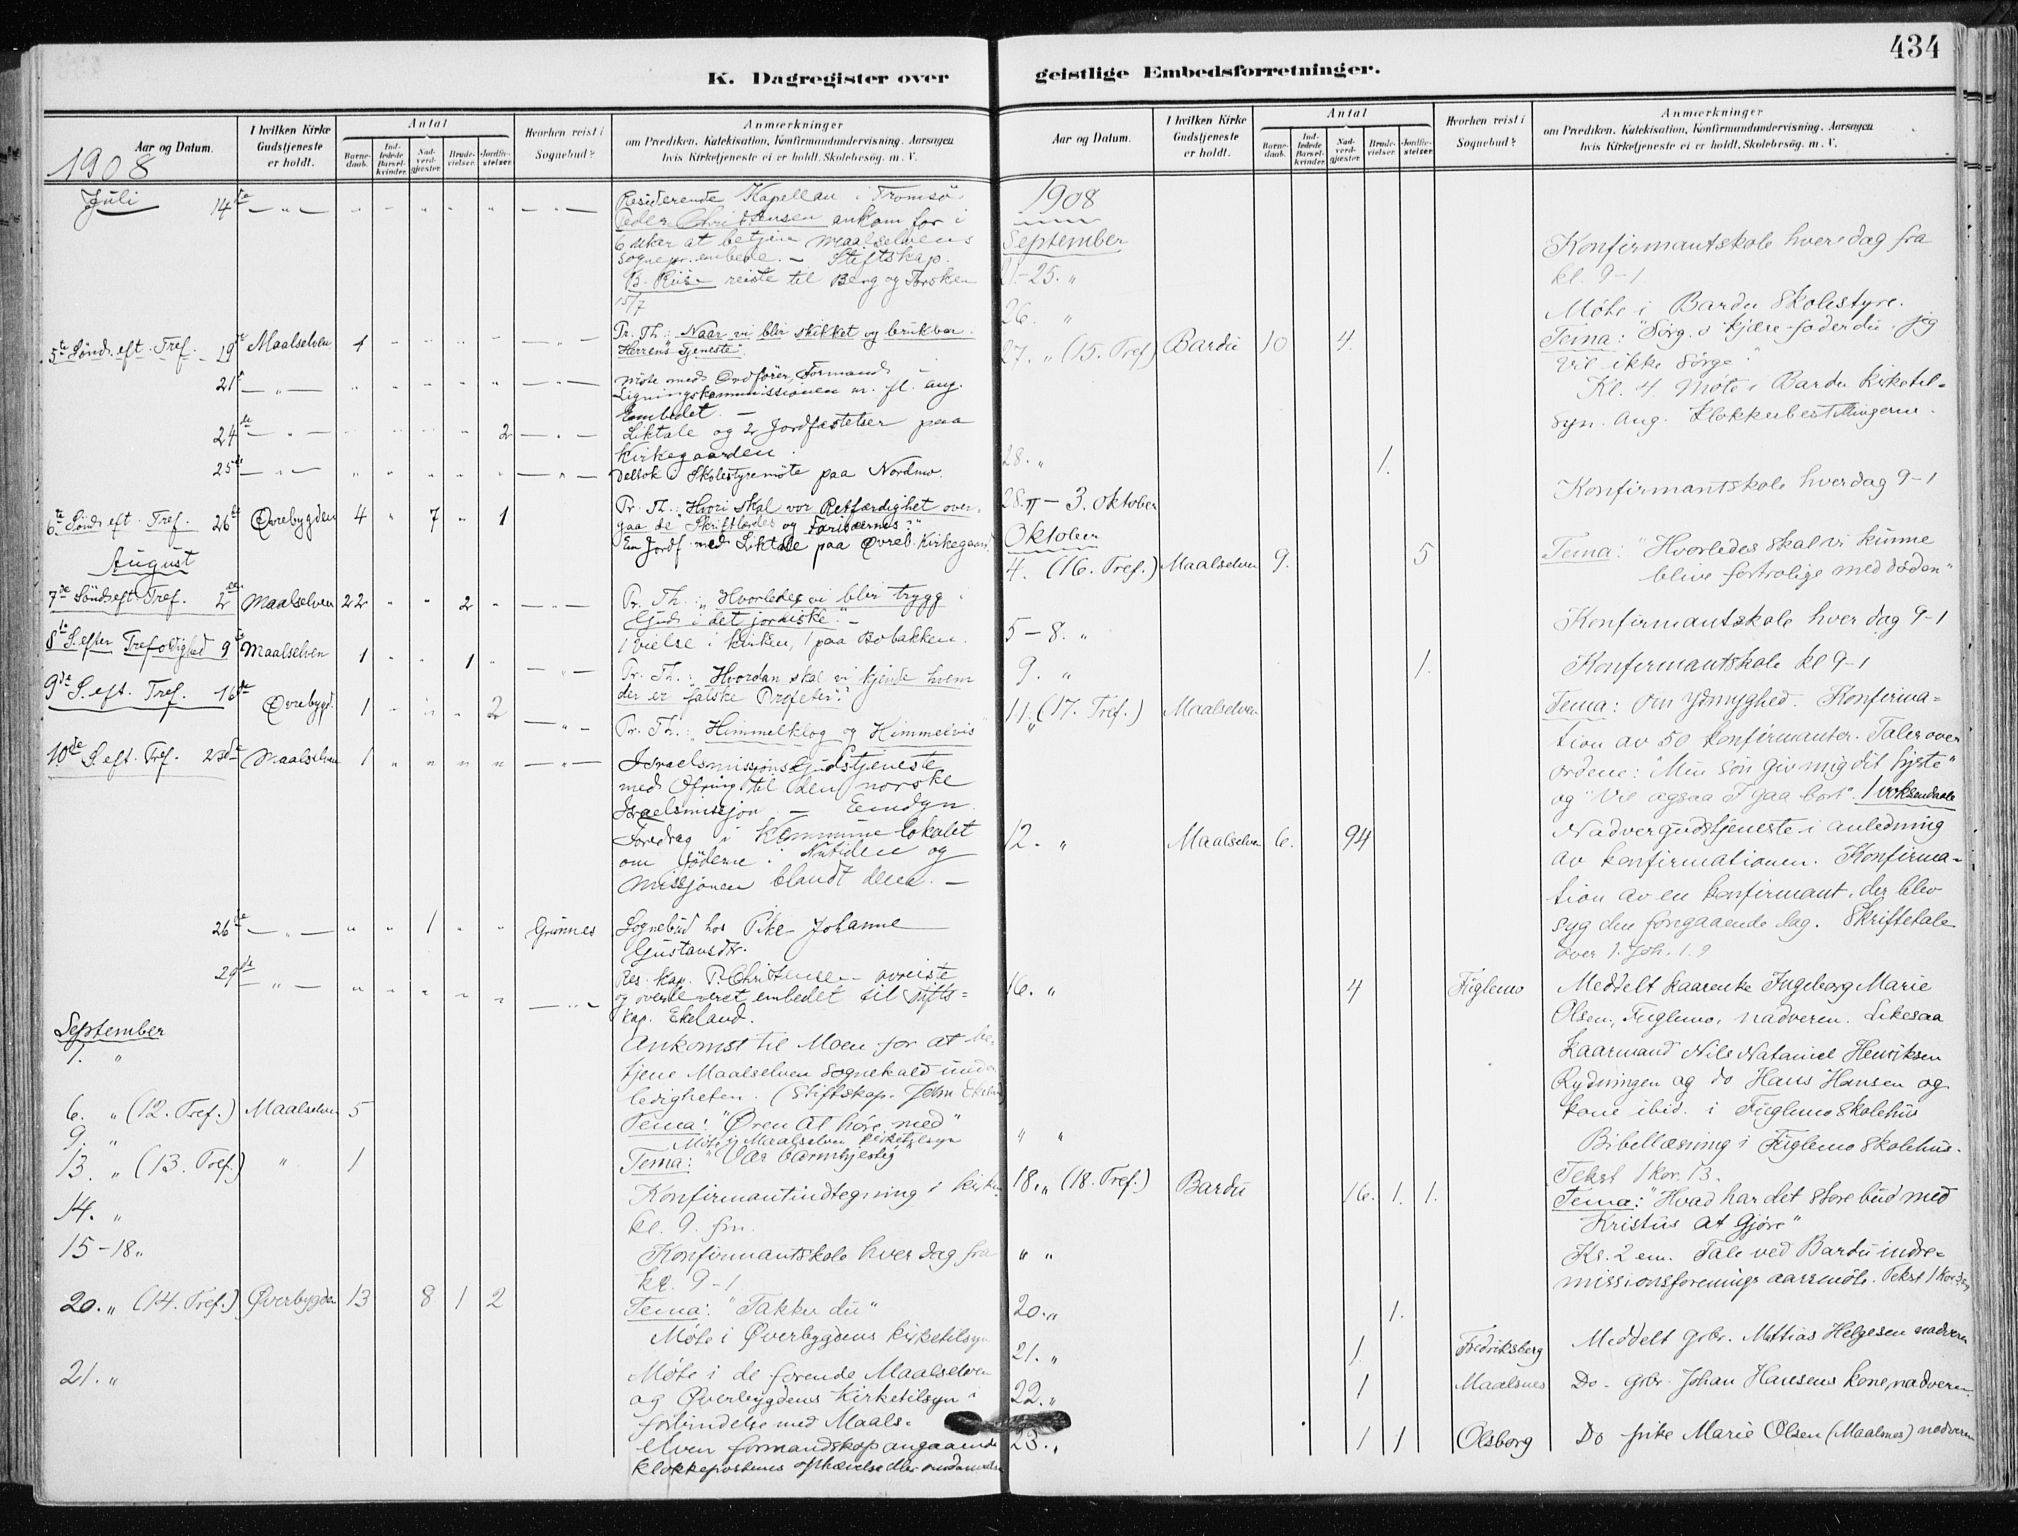 434
K. Dagregister over
geistlige Embedsforretninger.
Aar og Datum.
I hvilken Kirke
Gudstjeneste
er holdt.
Antal
Barne-
daab.
Ind-
ledede
Barsel-
kvinder.
Nad-
verd-
gjæster.
Brude-
vielser.
Jordfæ-
stelser.
Hvorhen reist i
Sognebud?
Anmærkninger
om Prædiken, Katekisation, Konfirmandundervisning, Aarsagen
hvis Kirketjeneste ei er holdt, Skolebesøg, m. V.
1908
Juli 14de — " — Residerende Kapellan i Tromsø
Peder Christensen ankom for i
6 uker at betjene Maalselvens
sognepr.embede. — Stiftskap.
B. Riise reiste til Berg og Torsken
15/7
5te Sønd. eft. Tref. 19de Maalselven 1 Pr. Th.: Naar vi blir skikket og brukbar
Herrens Tjeneste.
21de — " — Møte med Ordfører, Formand
Ligningskommissionen m. fl. ang.
Embedet. —
24de — " — 2 Liktale og 2 Jordfæstelser paa
Kirkegaarden.
25de — " — Deltok i Skolestyremøte paa Nordmo.
6te Sønd. eft. Tref. 26de Øvrebygden 4 " 7 " 1 Pr. Th.: Hvori skal vor Retfærdighet over-
gaa de Skriftlærdes og Farisæernes?"
En Jordf. med Liktale paa Øvreb. Kirkegaard.
August
7de Sønd. eft. Tref. 2den Maalselven 22 " " 2 " Pr. Th.: "Hvorledes vi blir trygg
Guds i det jordiske." —
1 vielse i kirken, 1 paa Bobakken.
8de S. efter Trefoldighed 9de Maalselven 1 " " 1 " Pr. Th.: Hvordan skal vi kjende hvem
der er falske Profeter?"
9de S. eft. Tref. 16de Øvrebygd. 1 " " " 2 Pr. Th.: Himmelklog og Himmelvis"
10de S. eft. Tref. 23de Maalselven 1 Israelsmissionsgudstjeneste
med Ofring til Den norske
Israelsmissjon. — Eendyn.
Foredrag i Kommunelokalet
om Jøderne i Nutiden og
Missjonen blandt dem. —
26de — " — 1 Grønnes Sognebud hos Pike Johanne
Gustavsdtr.
29de — " — Res. kap. P. Christensen avreiste
og overleveret embedet til Stifts-
kap. Ekeland.
September
1. " Ankomst til Moen for at be-
tjene Maalselven sognekald under
ledigheten. (Stiftskap. John Ekeland)
6. " (12. Tref.) Maalselven 5 Tema: "Øren at høre med"
9. " Møte i Maalselven kirketilsyn
13. " (13. Tref.) " 1 Tema: "Vær barmhjertig"
14. " Konfirmantindtegning i kirken
kl. 9. fm.
15-18 " Konfirmantskole hver dag fra
kl. 9-1
20. " (14. Tref.) Øverbygden 13 8 1 2 Tema: "Takker du"
Møte i Øverbygdens kirketilsyn
21. " Møte i de forende Maalselven
og Øverbygdens kirketilsyn i
forbindelse med Maals-
elven formandskap angaaende
klokkerpostenes ophævelse eller
Aar og Datum.
I hvilken Kirke
Gudstjeneste
er holdt.
Antal
Barne-
daab.
Ind-
ledede
Barsel-
kvinder.
Nad-
verd-
gjæster.
Brude-
vielser.
Jordfæ-
stelser.
Hvorhen reist i
Sognebud?
Anmærkninger
om Prædiken, Katekisation, Konfirmandundervisning, Aarsagen
hvis Kirketjeneste ei er holdt, Skolebesøg, m. V.
1908
September
21-25. " Konfirmantskole hver dag fra
kl. 9-1
26. " Møte i Bardu skolestyre.
27. " (15. Tref) Bardu 10 4. Tema: "Sørg o kjære fader du. jeg
vil ikke sørge."
Kl. 4. Møte i Bardu kirketil-
syn. ang. klokkerbestillingerne.
28. " 1.
28. " — 3. Oktober Konfirmantskole hverdag 9-1
Oktober
4. (16. Tref.) Maalselven 9. 5 Tema: "Hvorledes skal vi kunne
blive fortrolige med døden"
5-8. " Konfirmantskole hver dag 9-1
9. " 1. Konfirmantskole kl 9-1
11. " (17. Tref.) Maalselven Tema: Om Ydmyghed. Konfirma-
tion av 50 konfirmanter. Taler over
ordene: "Min søn giv mig dit hjerte"
og "Vil ogsaa I gaa bort". 1 voksendaab
12. " Maalselven 6. 94 Nadvergudstjeneste i anledning
av konfirmationen. Konfirma-
tion av en konfirmant, der blev
syg den foregaaende dag. Skriftetale
over 1. Joh. 1. 9
16. " 4 Fuglemo Meddelt kaarenke Ingeborg Marie
Olsen, Fuglemo, nadveren. Likesaa
Kaarmand Nils Nataniel Henriksen
Rydningen og do Hans Hansen og
kone ibid. i Fuglemo skolehus
" " Bibellæsning i Fuglemo skolehus.
Tekst 1 Kor. 13.
18. " (18. Tref.) Bardu 16. 1. 1. Tema: "Hvad har det store bud med
Kristus at gjøre"
" " Kl. 2 em. Tale ved Bardu indre-
missionsforenings aarsmøte. Tekst 1 Kor.
20. " 1.
21. " 1. Fredriksberg Meddelt gbr. Mattias Helgesen nadveren
22. " 1 Maalsnes Do — gbr. Johan Hansens kone, nadveren
23. " 1 1 Olsborg Do pike Marie Olsen (Maalsnes) nadveren